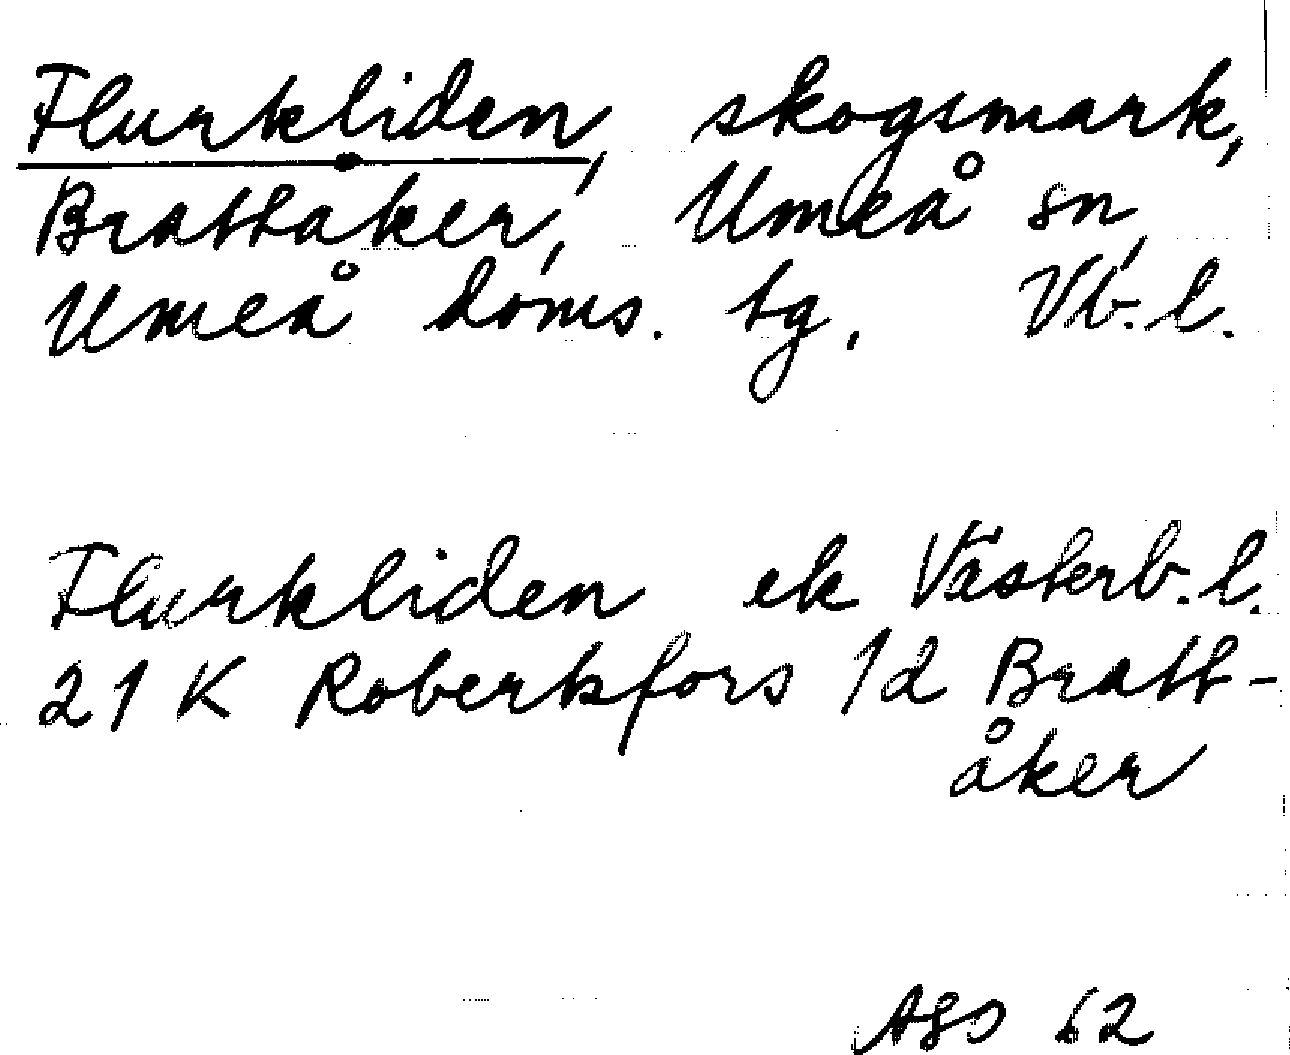 Flurkliden, skogsmark,
Brattåker, Umeå sn,
Umeå doms. tg. Vb. l.
Flurkliden ek Västerb. l.
21 K Robertsfors 1d Bratt-
åker
62